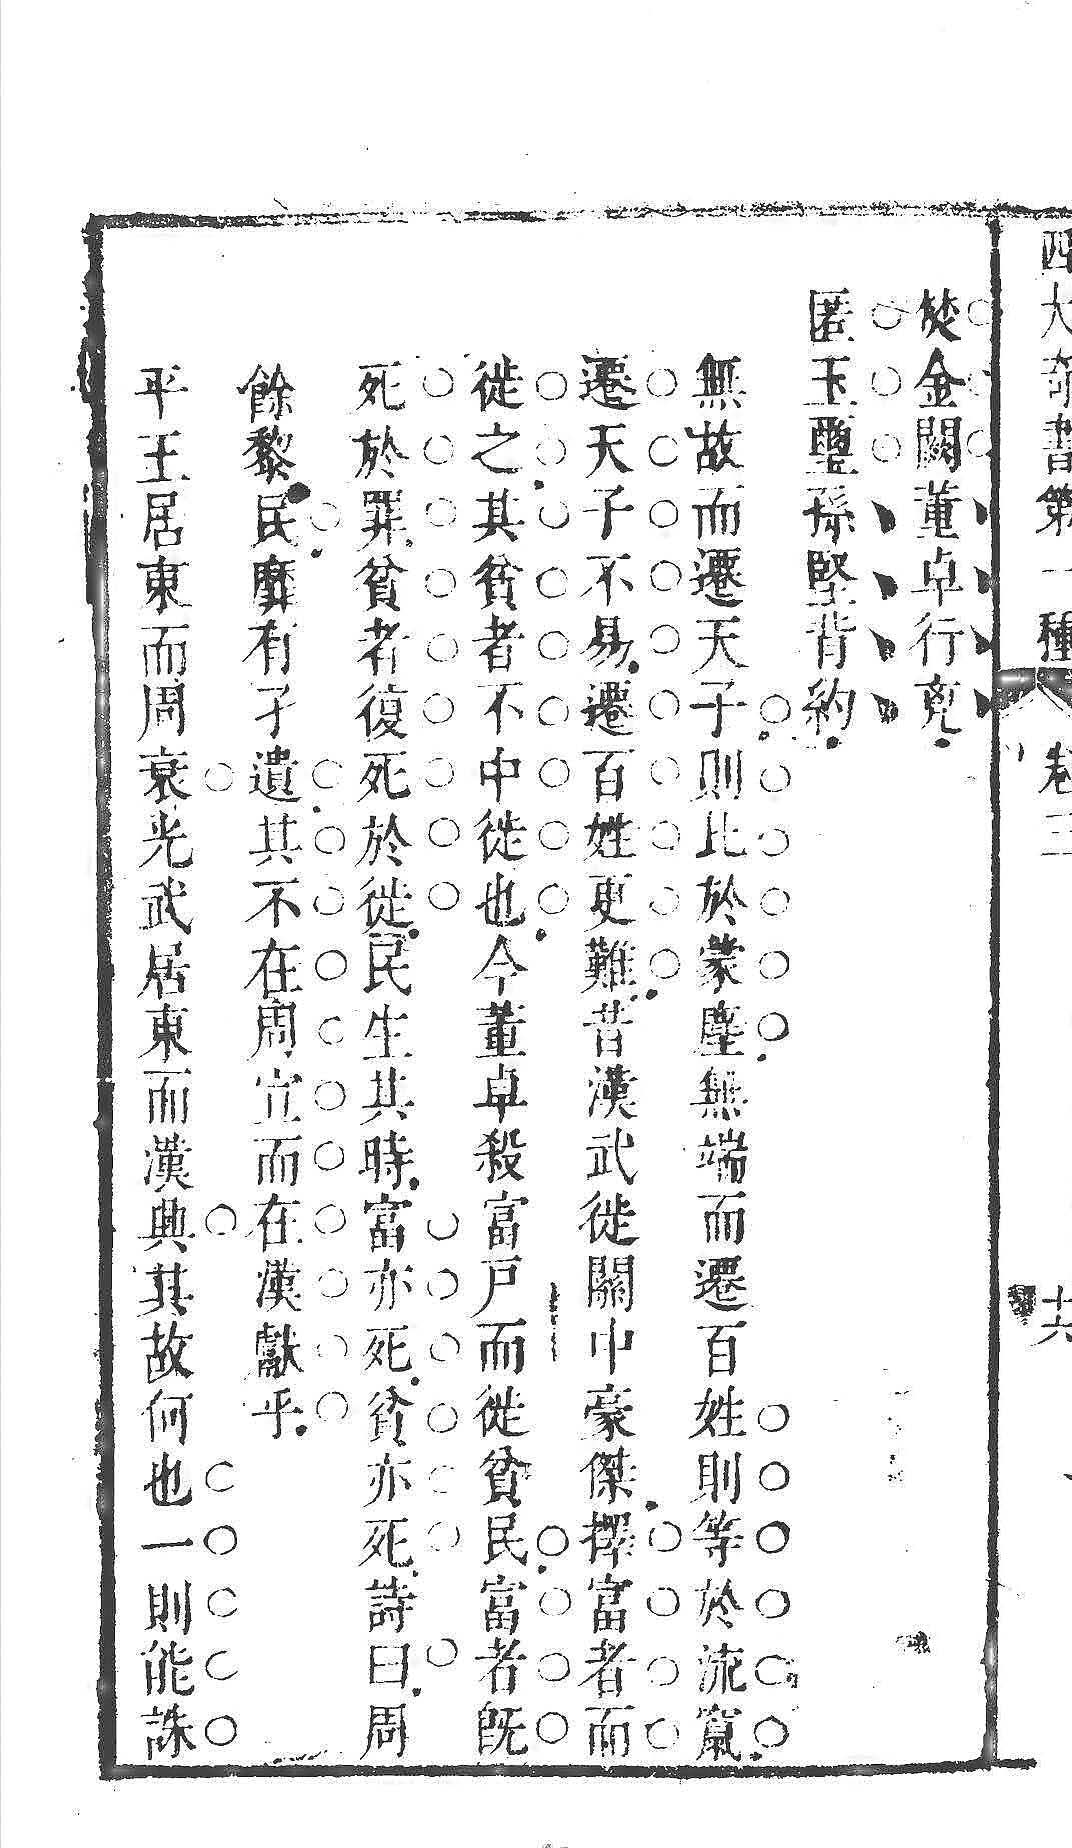 四大奇書第一種 卷三 六
焚金闕董卓行兇
匿玉璽孫堅背約
無故而遷天子則比於蒙塵無端而遷百姓則等於流竄
遷天子不易遷百姓更難昔漢武徙關中豪傑擇富者而
徙之其貧者不中徙也今董卓殺富戶而徙貧民富者既
死於罪貧者復死於徙民生其時富亦死貧亦死詩曰周
餘黎民靡有孑遺其不在周宣而在漢獻乎
平王居東而周衰光武居東而漢興其故何也一則能誅